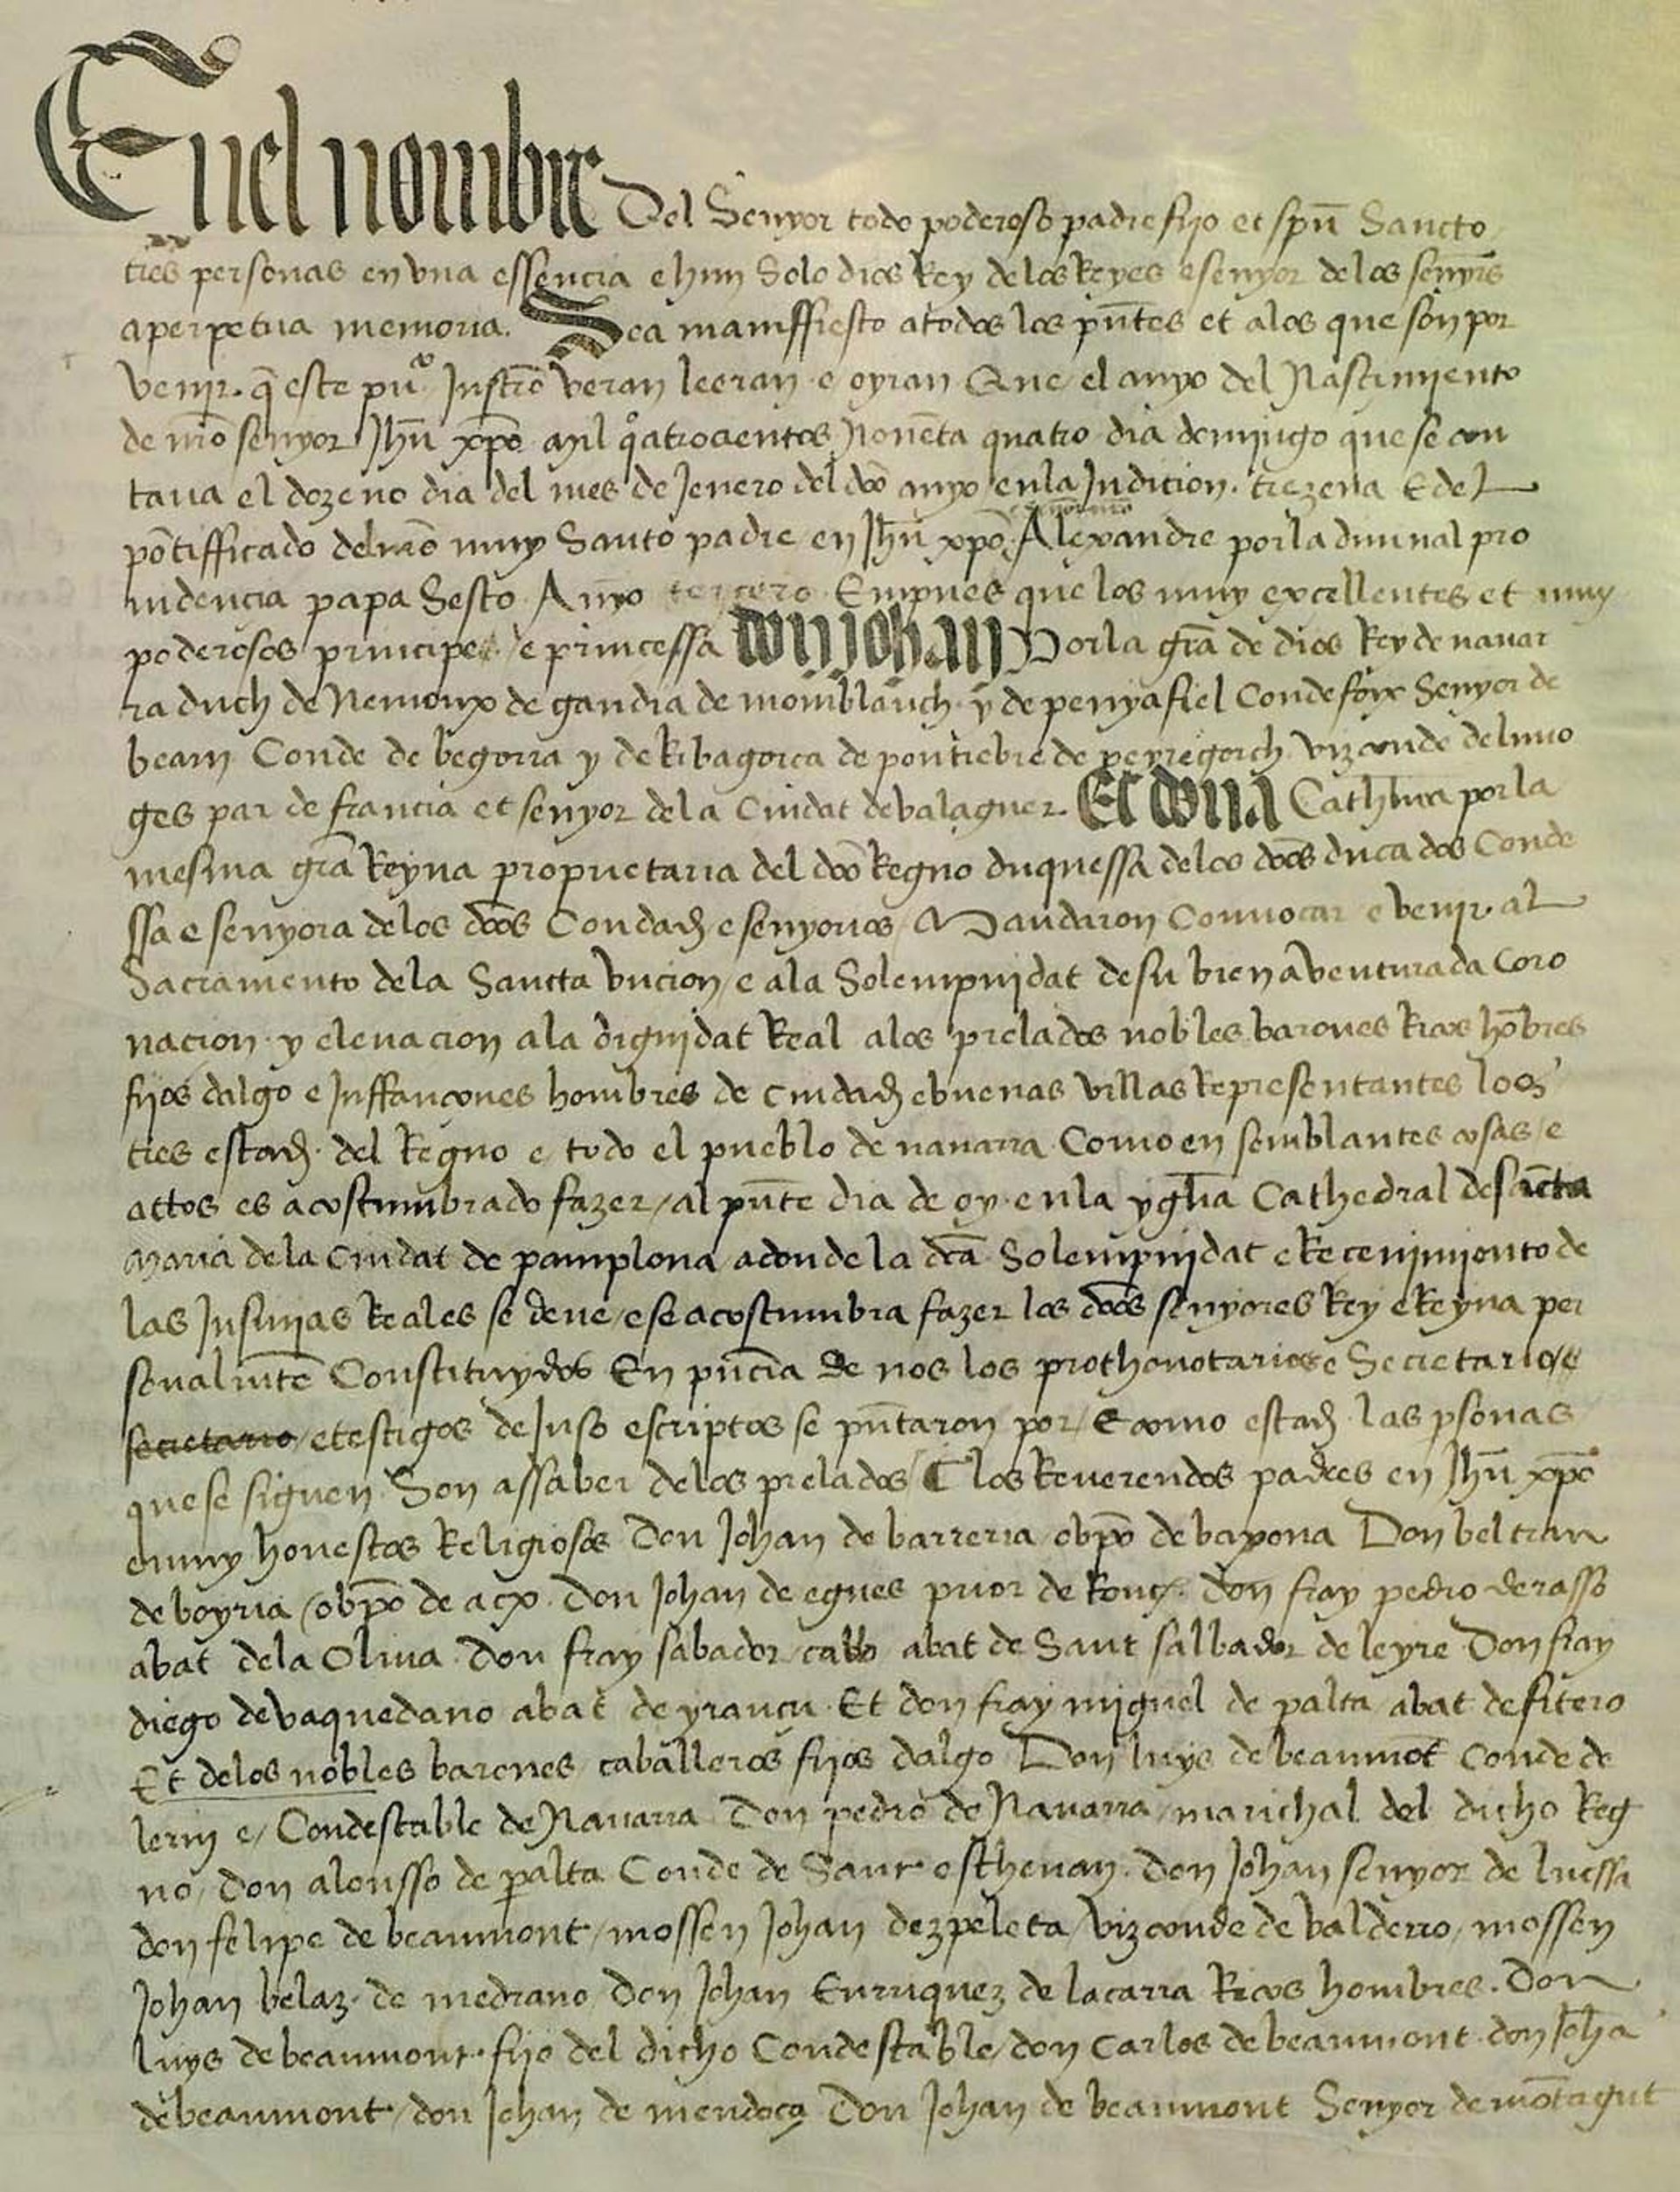 En el nombre Del Senyor todo poderoso padre fijo et spũ Sancto
tres personas en vna essencia e hun Solo dios Rey de los Reyes e senyor de los senyrs
a perpetua memoria. Sea maniffiesto a todos los pn̄tes et a los que son por
venir. q̄ este puco Instro veran leeran e oyran Que el anyo del Nascimiento
de nr̄o senyor Jhū xp̄o mil qoatrocientos Nouēta quatro dia domingo que se con
taua el dozeno dia del mes de Jenero del dc̄o anyo en la Indicion trezena E del
pōtifficado del nr̄o muy Santo padre en Jhū xp̄o Alexandre por la diuinal pro
uidencia papa Sesto Anyo tercero Empues que los muy excellentes et muy
poderosos principe e princessa don johan Por la grā de dios Rey de nauar
ra duch de Nemoux de gandia de momblanch y de penyafiel Conde foix Senyor de
bearn Conde de begorra y de Ribagorca de pontiebre de peyregorch vizconde de limo
ges par de francia et senyor de la Ciudat de balaguer. Et dona Cathīna por la
mesma grā Reyna proprietaria del dc̄o Regno duquessa de los dc̄os ducados Conde
ssa e senyora de los dc̄os Condad̄ e senyorios Mandaron Conuocar e venir al
Sacramento de la Sancta Vncion e a la Solempnidat de su bien aventurada Coro
nacion y eleuacion a la dignidat Real a los prelados nobles barones Ricos hōbres
fijos dalgo e Inffancones hombres de Ciudad̄ e buenas villas Representantes los
tres estad̄ del Regno e todo el pueblo de nauarra Como en semblantes cosas e
actos es acostumbrado fazer / al pn̄te dia de oy en la ygl̄ia Cathedral de sācta
Maria de la Ciudat de pamplona adonde la dc̄a Solempnidat e Recenimiento de
las Insinias Reales se deue e se acostumbra fazer los dc̄os senyores Rey e Reyna per
sonalmēte Constituydos En pn̄cia de nos los prothonotarios e Secretario e
secretario / e testigos de Juso escriptos se pn̄taron por / E como estad̄ las psonas
que se siguen Son assaber de los prelados / los Reuerendos padres en Jhū xp̄o
e muy honestos Religiosos Don Johan de barreria obp̄o de bayona Don beltran
de boyria obp̄o de acx Don Johan de egues prior de Ronc. don fray pedro derasso
abat de la Oliua Don fray sabador calbo abat de Sant salbador de leyre Don fray
diego de vaquedano abat de yrancu Et don fray miguel de palta abat de fitero
Et de los nobles barones caballeros fijos dalgo Don luys de beaumōt Conde de
lerin e / Condestable de Nauarra Don pedro de Nauarra marichal del dicho Reg
no, Don alonsso de palta Conde de Sant esthevan. Don Johan senyor de lucssa
don felipe de beaumont / mossen Johan dezpeleta / vizconde de valderro / mossen
Johan belaz de medrano Don Johan Enrriquez de lacarra Ricos hombres. Don
luys de beaumont fijo del dicho Condestable / don Carlos de beaumont don Joha
de beaumont / don Johan de mendoca Don Johan de beaumont Senyor de mōtagut